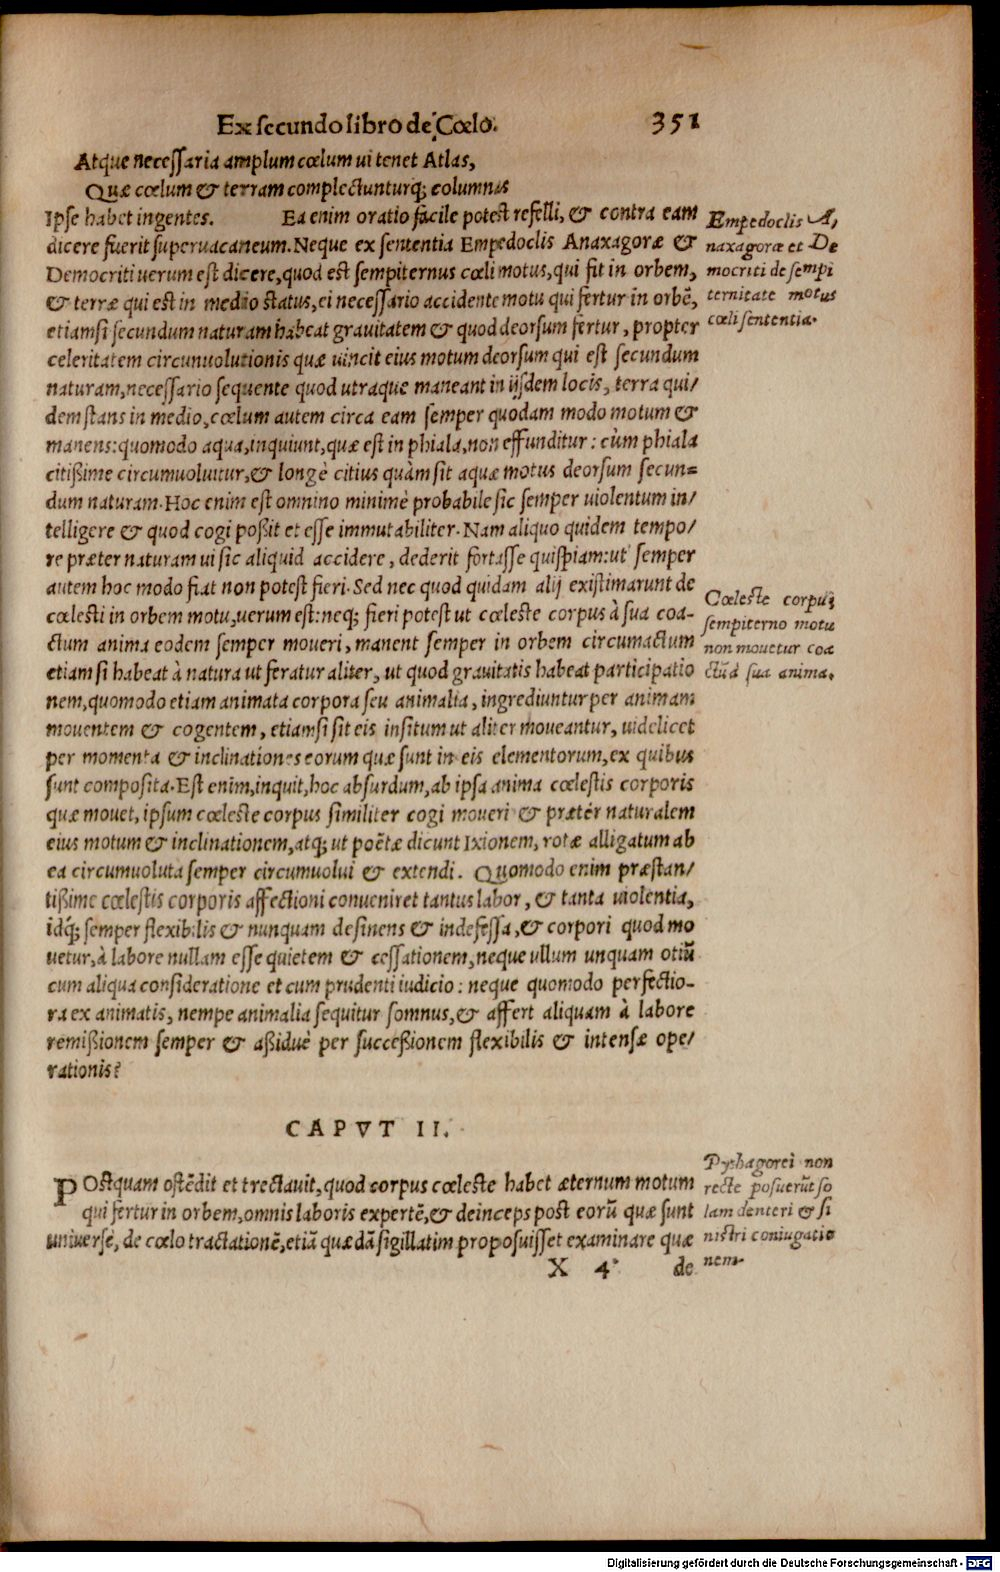 Ex secundo libro de Cœlo. 351
Atque necessaria amplum cœlum ui tenet Atlas,
Quæ cœlum & terram complectunturq; columnas
Ipse habet ingentes. Ea enim oratio facile potest refelli, & contra eam
dicere fuerit superuacaneum. Neque ex sententia Empedoclis Anaxagoræ &
Democriti uerum est dicere, quod est sempiternus cœli motus, qui fit in orbem,
& terræ qui est in medio status, ei necessario accidente motu qui fertur in orbē,
etiamsi secundum naturam habeat grauitatem & quod deorsum fertur, propter
celeritatem circunuolutionis quæ uincit eius motum deorsum qui est secundum
naturam, necessario sequente quod utraque maneant in ijsdem locis, terra qui/
dem stans in medio, cœlum autem circa eam semper quodam modo motum &
manens: quomodo aqua, inquiunt, quæ est in phiala, non effunditur: cùm phiala
citißime circumuoluitur, & longè citius quàm sit aquæ motus deorsum secun=
dum naturam. Hoc enim est omnino minimè probabile sic semper uiolentum in/
telligere & quod cogi poßit et esse immutabiliter. Nam aliquo quidem tempo/
re præter naturam ui sic aliquid accidere, dederit fortasse quispiam: ut semper
autem hoc modo fiat non potest fieri. Sed nec quod quidam alij existimarunt de
cœlesti in orbem motu, uerum est: neq; fieri potest ut cœleste corpus à sua coa-
ctum anima eodem semper moueri, manent semper in orbem circumactum
etiam si habeat à natura ut feratur aliter, ut quod grauitatis habeat participatio
nem, quomodo etiam animata corpora seu animalia, ingrediuntur per animam
mouentem & cogentem, etiamsi sit eis insitum ut aliter moueantur, uidelicet
per momenta & inclinationes eorum quæ sunt in eis elementorum, ex quibus
sunt composita. Est enim, inquit, hoc absurdum, ab ipsa anima cœlestis corporis
quæ mouet, ipsum cœleste corpus similiter cogi moueri & præter naturalem
eius motum & inclinationem, atq; ut poëtæ dicunt Ixionem, rotæ alligatum ab
ea circumuoluta semper circumuolui & extendi. Quomodo enim præstan/
tißime cœlestis corporis affectioni conueniret tantus labor, & tanta uiolentia,
idq; semper flexibilis & nunquam desinens & indefessa, & corpori quod mo
uetur, à labore nullam esse quietem & cessationem, neque ullum unquam otiū
cum aliqua consideratione et cum prudenti iudicio: neque quomodo perfectio-
ra ex animatis, nempe animalia sequitur somnus, & affert aliquam à labore
remißionem semper & aßiduè per succeßionem flexibilis & intensæ ope/
rationis?
Empedoclis A,
naxagoræ et De
mocriti de sempi
ternitate motus
cœli sententia.
Cœleste corpus
sempiterno motu
non mouetur coa
ctū à sua anima.
CAPVT II.
POstquam ostēdit et trectauit, quod corpus cœleste habet æternum motum
qui fertur in orbem, omnis laboris expertē, & deinceps post eorū quæ sunt
uniuersè, de cœlo tractationē, etiā quædā sigillatim proposuisset examinare quæ
Pythagorei non
recte posuerūt so
lam denteri & si
nistri coniugatio
nem.
X 4 de
Digitalisierung gefördert durch die Deutsche Forschungsgemeinschaft - DFG